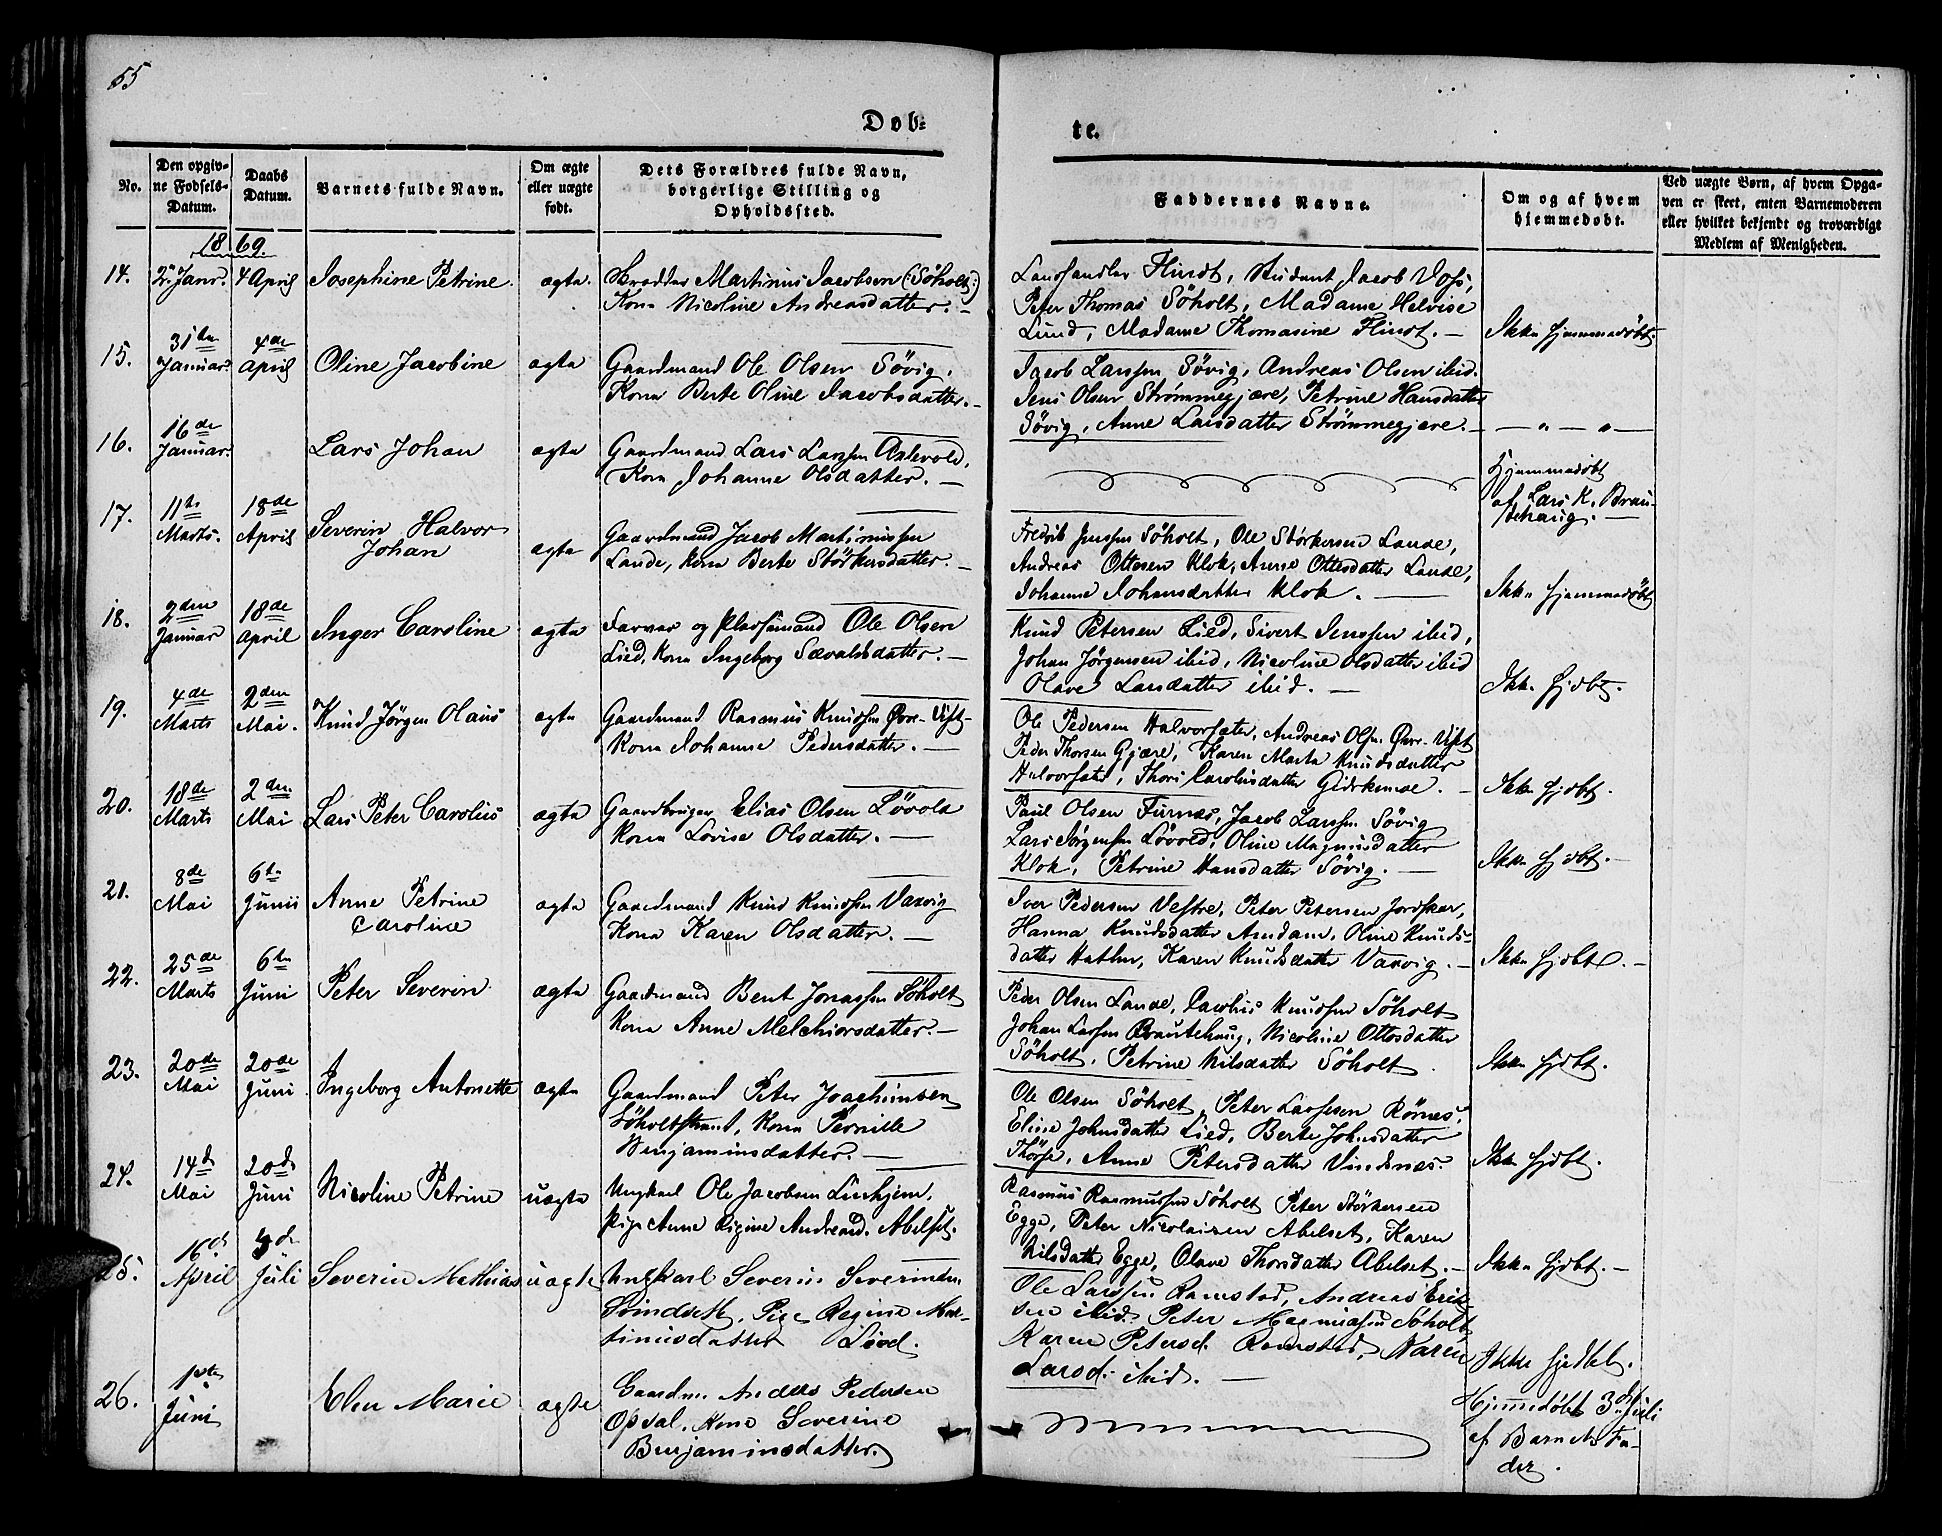 55
Døb-
te.
No.
Den opgiv-
ne Fødsels-
Datum.
Daabs
Datum.
Barnets fulde Navn.
Om ægte
eller uægte
født.
Dets Forældres fulde Navn,
borgerlige Stilling og
Opholdssted.
Faddernes Navne.
Om og af hvem
hjemmedøbt.
Ved uægte Børn, af hvem Opga-
ven er skeet, enten Barnemoderen
eller hvilket bekjendt og troværdigt
Medlem af Menigheden.
1869.
14. Janr. 4 April Josephine Petrine. ægte. Skrædder Martinus Jacobsen (Søholt:)
Kone Nicoline Andreasdatter.
Landhandler Flindt, Student Jacob Voss,
Peter Thomas Søholt, Madame Helvise
Lund, Madame Thomasine Flindt. Ikke hjemmedøbt.
15. 31te Januar. 4de April Oline Jacobine ægte Gaardmand Ole Olsen Søvig.
Kone Berte Oline Jacobsdatter.
Jacob Larssen Søvig, Andreas Olsen ibid.
Jens Olsen Strømmegjære, Petrine Hansdatter
Søvig, Anne Larsdatter Strømmegjære. — " — " —
16. 16de Januar. Lars Johan ægte Gaardmand Lars Larssen
Kone Johanne Olsdatter.
Hjemmedøbt
af Lars K. Brau-
tehaug.
17. 11te Marts. 18de April Severin Halvor
Johan ægte Gaardmand Jacob Martinussen
Lande, Kone Berte Størkersdatter.
Fredrik Jenssen Søholt, Ole Størkersen Lande,
Andreas Ottesen Klok, Anne Ottesdatter Lande,
Johanne Johansdatter Klok. Ikke hjemmedøbt
18. 2den Januar 18de April Inger Caroline ægte Farver og Pladsemand Ole Olsen
Lied, Kone Ingeborg Sævaldsdatter.
Knud Petersen Lied, Sivert Jenssen ibid,
Johan Jørgensen ibid, Nicoline Olsdatter ibid
Olave Larsdatter ibid. Ikke hjdbt.
19. 4de Marts 2den Mai. Knud Jørgen Olaus ægte Gaardmand Rasmus Knudsen Øvre-Vift
Kone Johanne Pedersdatter.
Ole Pedersen Halvorsæter, Andreas Olsen Øvre-Vift
Peder Thorsen Gjære, Karen Marta Knudsdatter
Halvorsæter, Thora Carolusdatter Ikke hjdbt.
20. 18de Marts 2den Mai Lars Peter Carolius ægte Gaardbruger Elias Olsen Løvold
Kone Lovise Olsdatter.
Paul Olsen Furnæs, Jacob Larssen Søvig
Lars Jørgensen Løvold, Oline Magnusdatter
Klok, Petrine Hansdatter Søvig. Ikke hjdbt.
21. 8de Mai 6te Junii Anne Petrine
Caroline ægte Gaardmand Knud Knudsen Vaxvig
Kone Karen Olsdatter.
Iver Pedersen Vestre, Peter Petersen Jordskar,
Hanna Knudsdatter Amdam, Oline Knuds-
datter Hatlen, Karen Knudsdatter Vaxvig. Ikke hjdbt.
22. 25de Marts 6te Juni Peter Severin ægte Gaardmand Bent Jonassen Søholt
Kone Anne Melchiorsdatter.
Peder Olsen Lande, Carolus Knudsen Søholt
Johan Larsen Brautehaug, Nicoline Ottosdatter
Søholt, Petrine Nilsdatter Søholt. Ikke hjdbt.
23. 20de Mai 20de Juni Ingeborg Antonette ægte Gaardmand Peter Joachimsen
Søholtstrand, Kone Pernille
Benjaminsdatter.
Ole Olsen Søholt, Peter Larssen Rørnes,
Eline Johnsdatter Lied, Berte Johnsdatter
Anne Petersdatter Vindsnæs. Ikke hjdbt.
24. 14d Mai 20d Juni Nicoline Petrine uægte Ungkarl Ole Jacobsen
Pige Anne Regine Andreasd. Abelset.
Rasmus Rasmussen Søholt Peter Størkersen
Egge, Peter Nicolaisen Abelset, Karen
Nilsdatter Egge, Olave Thorsdatter Abelset. Ikke hjdbt.
25. 16d April Juli Severin Mathias uægte Ungkarl Severin Severinsen
Svindseth, Pige Regine Mar-
tinusdatter Lied.
Ole Larssen Ramstad, Andreas Erik-
sen ibid. Peter Magnussen Søholt
Karen Petersd. Ramstad, Karen
Larsd. ibid. Ikke hjedbt.
26. 1ste Juni Elen Marie ægte Gaardm. Anders Pedersen
Opsal, Kone Severine
Benjaminsdatter.
Hjemmedøbt 3de Juli
af Barnets Fa-
der.